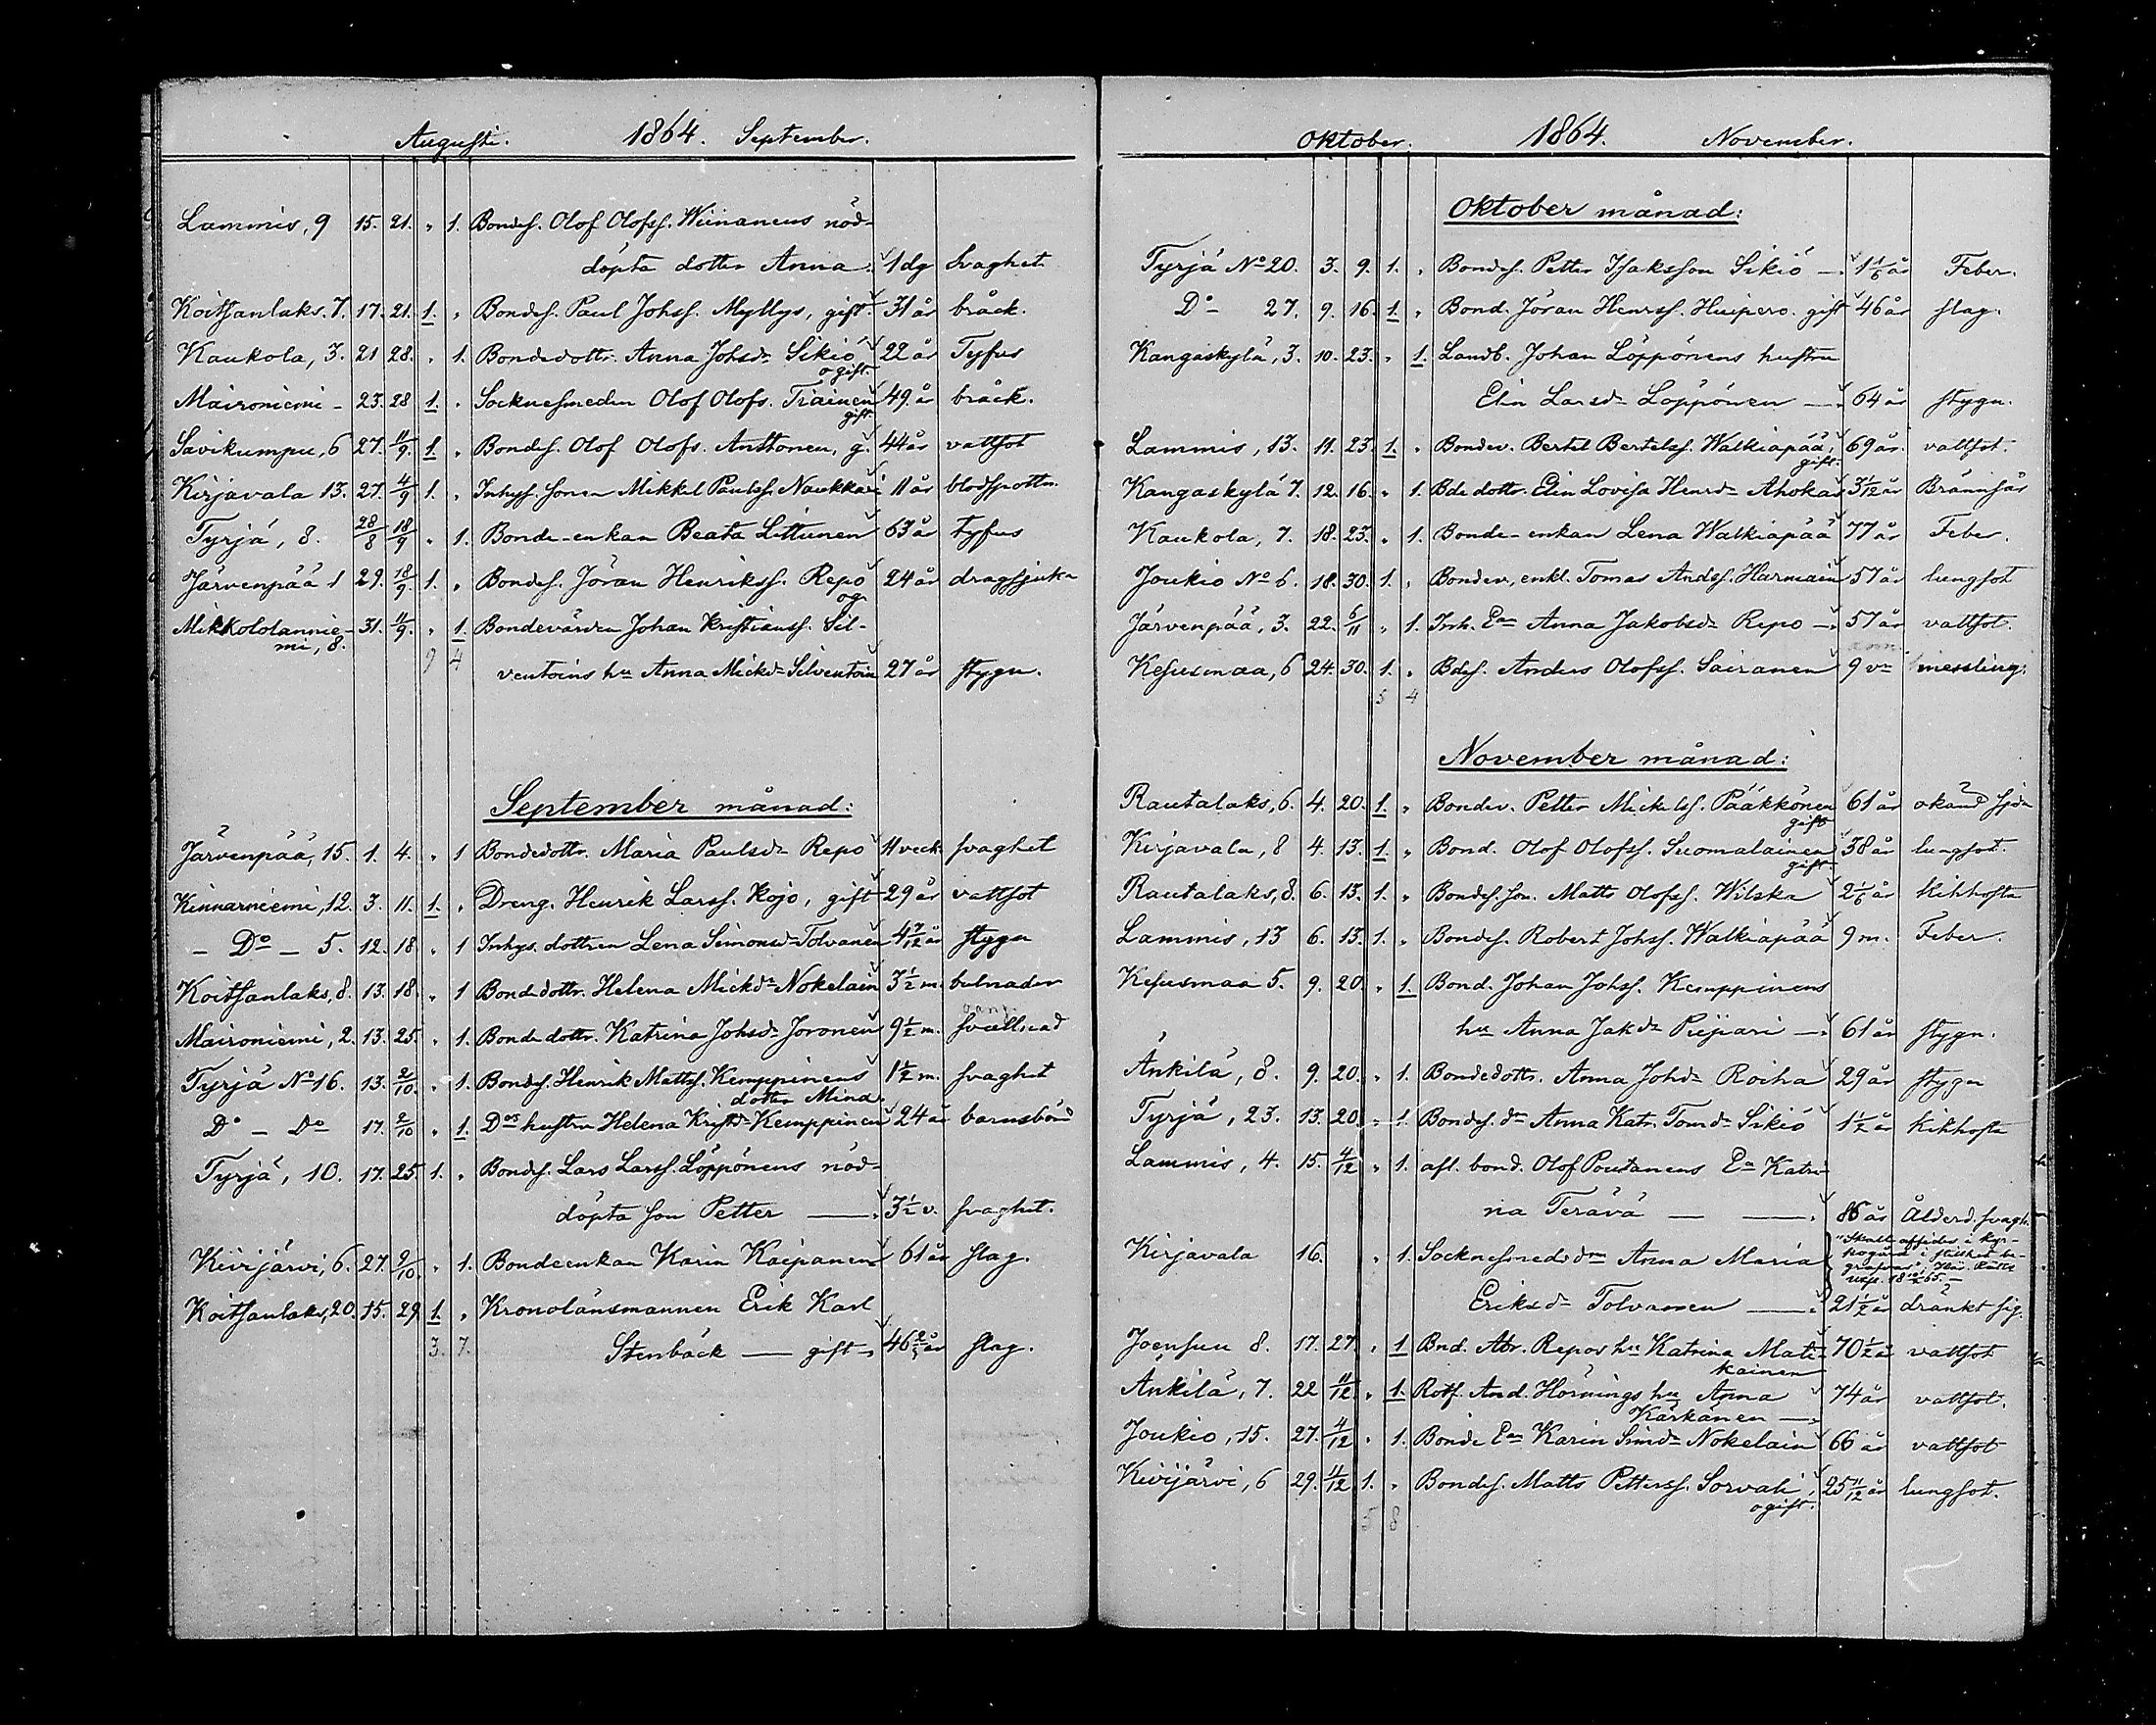 Augusti. 1864. September.
Lammis, 9 15. 21. „ 1. Bondes. Olof Olofss. Wiinanens nöd-
döpta dotter Anna. 1 dg Svaghet
Koitsanlaks. 7. 17. 21. 1. „ Bondes. Paul Johss. Myllys, gift. 31 år bråck.
Kaukola, 3. 21 28. „ 1. Bondedottr. Anna Johsdr Sikiö 22 år Tyfus
ogift.
Maironiemi – 23. 28 1. „ Socknesmeden Olof Olofs. Tiainen 49. år bråck.
gift.
Savikumpu, 6 27. 11/9. 1. „ Bondes. Olof Olofs. Anttonen, g. 44 år vattsot
Kirjavala 13. 27. 4/9 1. „ Inhys. sonen Mikkel Paulss. Naukkari 11 år blodspottn.
Tyrjä, 8. 28/8 18/9 „ 1. Bonde-enkan Beata Littunen 63 år tyfus
Järvenpää 1 29. 18/9. 1. „ Bondes. Jöran Henrikss. Repo 24 år dragsjuka
og.
Mikkololannie- 31. 11/9. „ 1. Bondevärden Johan Kristianss. Sil-
mi, 8.
9 4 ventoins hu Anna Mickdr Silventoin 27 år stygn.
September månad:
Järvenpää, 15. 1. 4. „ 1 Bondedottr. Maria Paulsdr Repo 11 veck svaghet
Kinnarniemi, 12. 3. 11. 1. „ Dreng. Henrik Larss. Kojo, gift 29 år vattsot
– Do – 5. 12. 18. „ 1 Inhys. dottren Lena Simonsdr Tolvanen 4 7/12 år stygn
Koitsanlaks, 8. 13. 18. „ 1 Bondedottr. Helena Mickdr Nokelain 3 1/2 m. bulnader
Maironiemi, 2. 13. 25. „ 1. Bondedottr. Katrina Johsdr Joronen 9 1/2 m. svullnad
Tyrjä No 16. 13. 2/10. „ 1. Bondes. Henrik Mattss. Kemppinens 1 1/2 m. svaghet
dotter Mina
Do – Do 17. 2/10 „ 1. Dos hustru Helena Kristdr Kemppinen 24 år barnsbörd
Tyrjä, 10. 17. 25 1. „ Bondes. Lars Larss. Löppönens nöd-
döpta son Petter — 3 1/2 v. svaghet.
Kivijärvi, 6. 27. 9/10. „ 1. Bondeenkan Karin Kaipanen 61 år slag.
Koitsanlaks, 20. 15. 29. 1. „ Kronolänsmannen Erik Karl
3. 7. Stenbäck — gift 46 2/3 år slag.
Oktober. 1864. November.
Oktober månad:
Tyrjä No 20. 3. 9. 1. „ Bondes. Petter Isaksson Sikiö — 1 1/6 år Feber.
Do – 27. 9. 16. 1. „ Bond. Jöran Henrss. Huipero. gift 46 år slag.
Kangaskylä, 3. 10. 23. „ 1. Landb. Johan Löppönens hustru
Elin Larsdr Löppönen — 64 år stygn.
Lammis, 13. 11. 23. 1. „ Bondev. Bertel Bertelss. Walkiapää, 69 år. vattsot.
gift.
Kangaskylä 7. 12. 16. „ 1. Bde dottr. Elin Lovisa Henrdr Ahokas 3 1/12 år Brännsår
Kaukola, 7. 18. 23. „ 1. Bonde-enkan Lena Walkiapää 77 år Feber.
Joukio No 6. 18. 30. 1. „ Bondev, enkl. Tomas Andss. Harmain 57 år lungsot
Järvenpää, 3. 22. 6/11 „ 1. Inh. Ean Anna Jakobsdr Repo — 57 år vattsot.
Kesusmaa, 6 24. 30. 1. „ Bdes. Anders Olofss. Sairanen 9 vr messling.
5 4
November månad:
Rautalaks, 6. 4. 20. 1. „ Bondev. Petter Mickelss. Pääkkönen 61 år okänd sjda
gift
Kirjavala, 8 4. 13. 1. „ Bond. Olof Olofss. Suomalainen 38 år lungsot.
gift.
Rautalaks, 8. 6. 13. 1. „ Bondes. son. Matts Olofss. Wilska 2 1/6 år Kikhosta
Lammis, 13 6. 13. 1. „ Bondes. Robert Johss. Walkiapää 9 m. Feber.
Kesusmaa 5. 9. 20. „ 1. Bond. Johan Johss. Kemppinens
hu Anna Jakdr Piipari — 61 år stygn.
Änkilä, 8. 9. 20. „ 1. Bondedottr. Anna Johdr Roiha 29 år stygn
Tyrjä, 23. 13. 20. „ 1. Bondes. dr Anna Katr. Tomdr Sikiö 1 1/2 år Kikhosta
Lammis, 4. 15. 4/12 „ 1. afl. bond. Olof Poutanens Ea Katri-
na Terävä — — 86 år Ålderd. svagh.
Kirjavala 16. „ 1. Socknesmeds drn Anna Maria "Skall affides i kyr-
kogård i stillhet be-
grafvas"
Eriksdr Tolvanen — 21 1/2 år dränkt sig.
Joensuu 8. 17. 27. „ 1 Bnd. Abr. Repos hu Katrina Mati- 70 1/2 år vattsot
kainen
Änkilä, 7. 22 11/12 „ 1. Rotf. And. Hörnings hu Anna 74 år vattsot.
Kärkänen —
Joukio, 15. 27. 4/12 „ 1. Bonde Ean Karin Simdr Nokelain 66 år vattsot
Kivijärvi, 6 29. 11/12 1. „ Bondes. Matts Petterss. Sorvali, 25 11/12 år lungsot.
ogift.
5 8